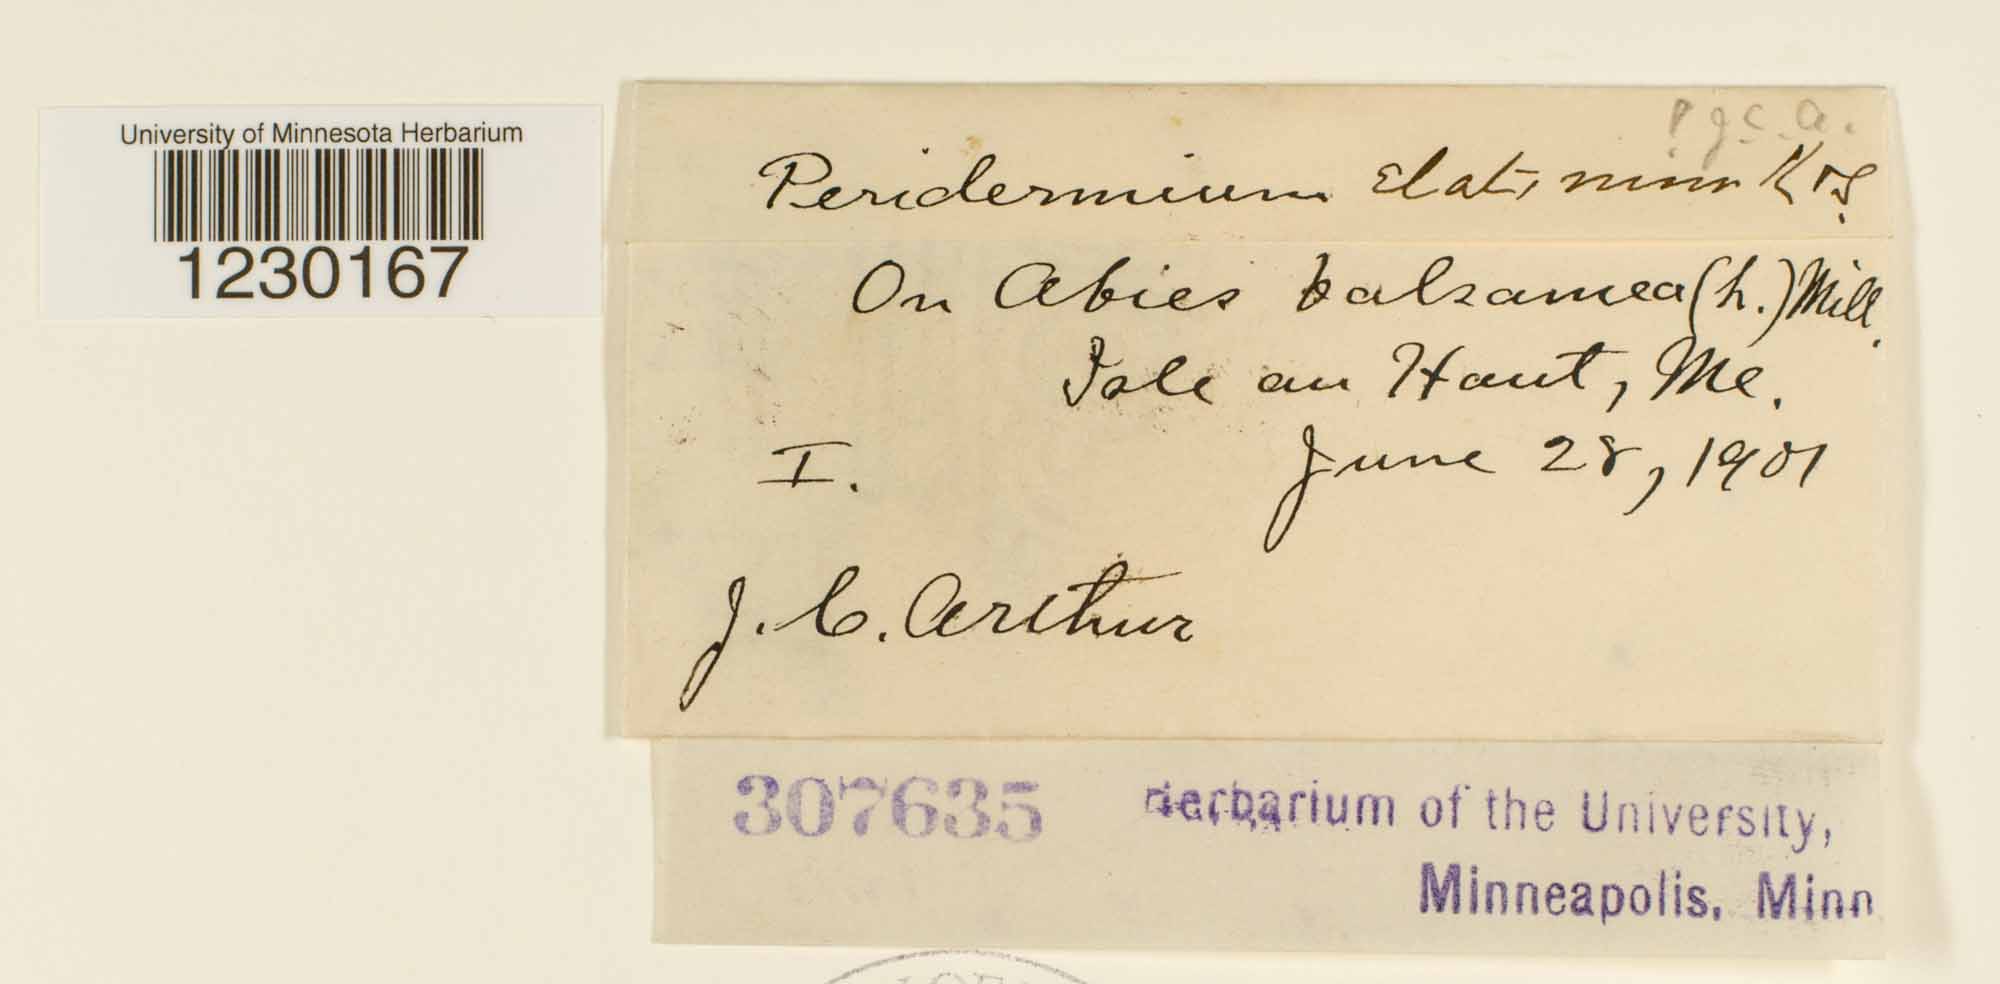 University of Minnesota Herbarium
1230167
Peridermium elatinum K & S.
On Abies balsamea (L.) Mill.
Isle au Haut, Me.
I. June 28, 1901
J. C. Arthur
307635 Herbarium of the University,
Minneapolis, Minn